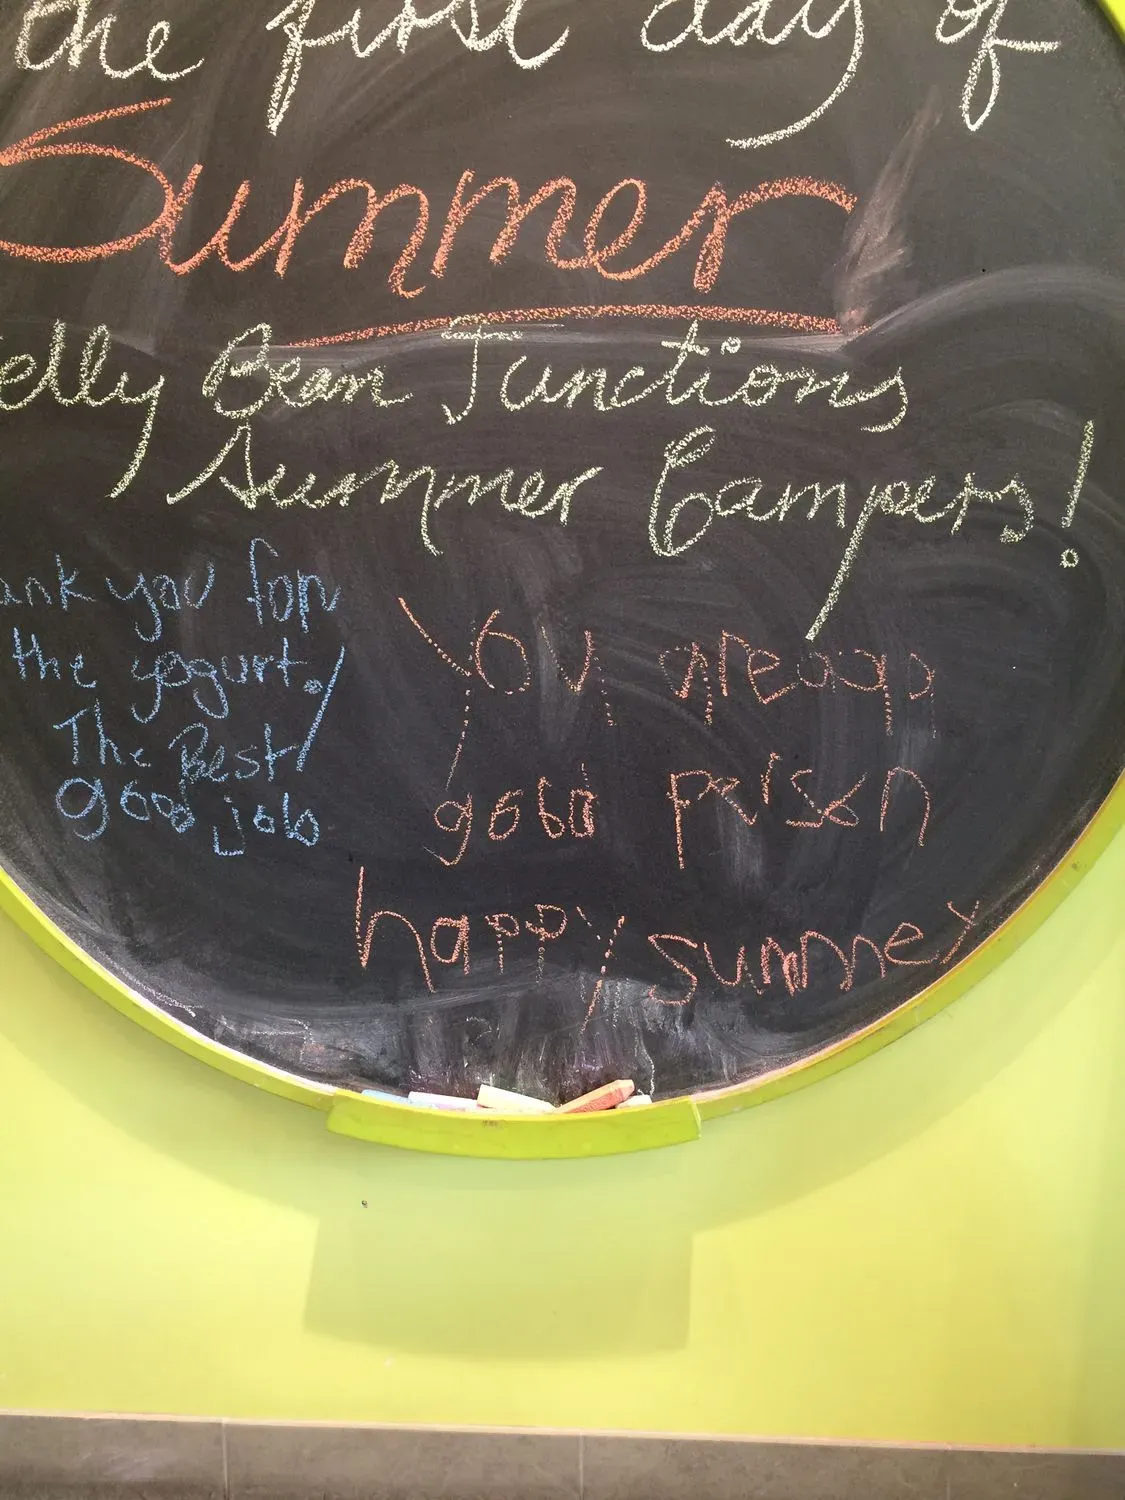 the first day of
Summer
elly Bean Junctions
Summer Campers!
ank you for
the yogurt!
The Best!
good job
You are aap
good person
happy summer